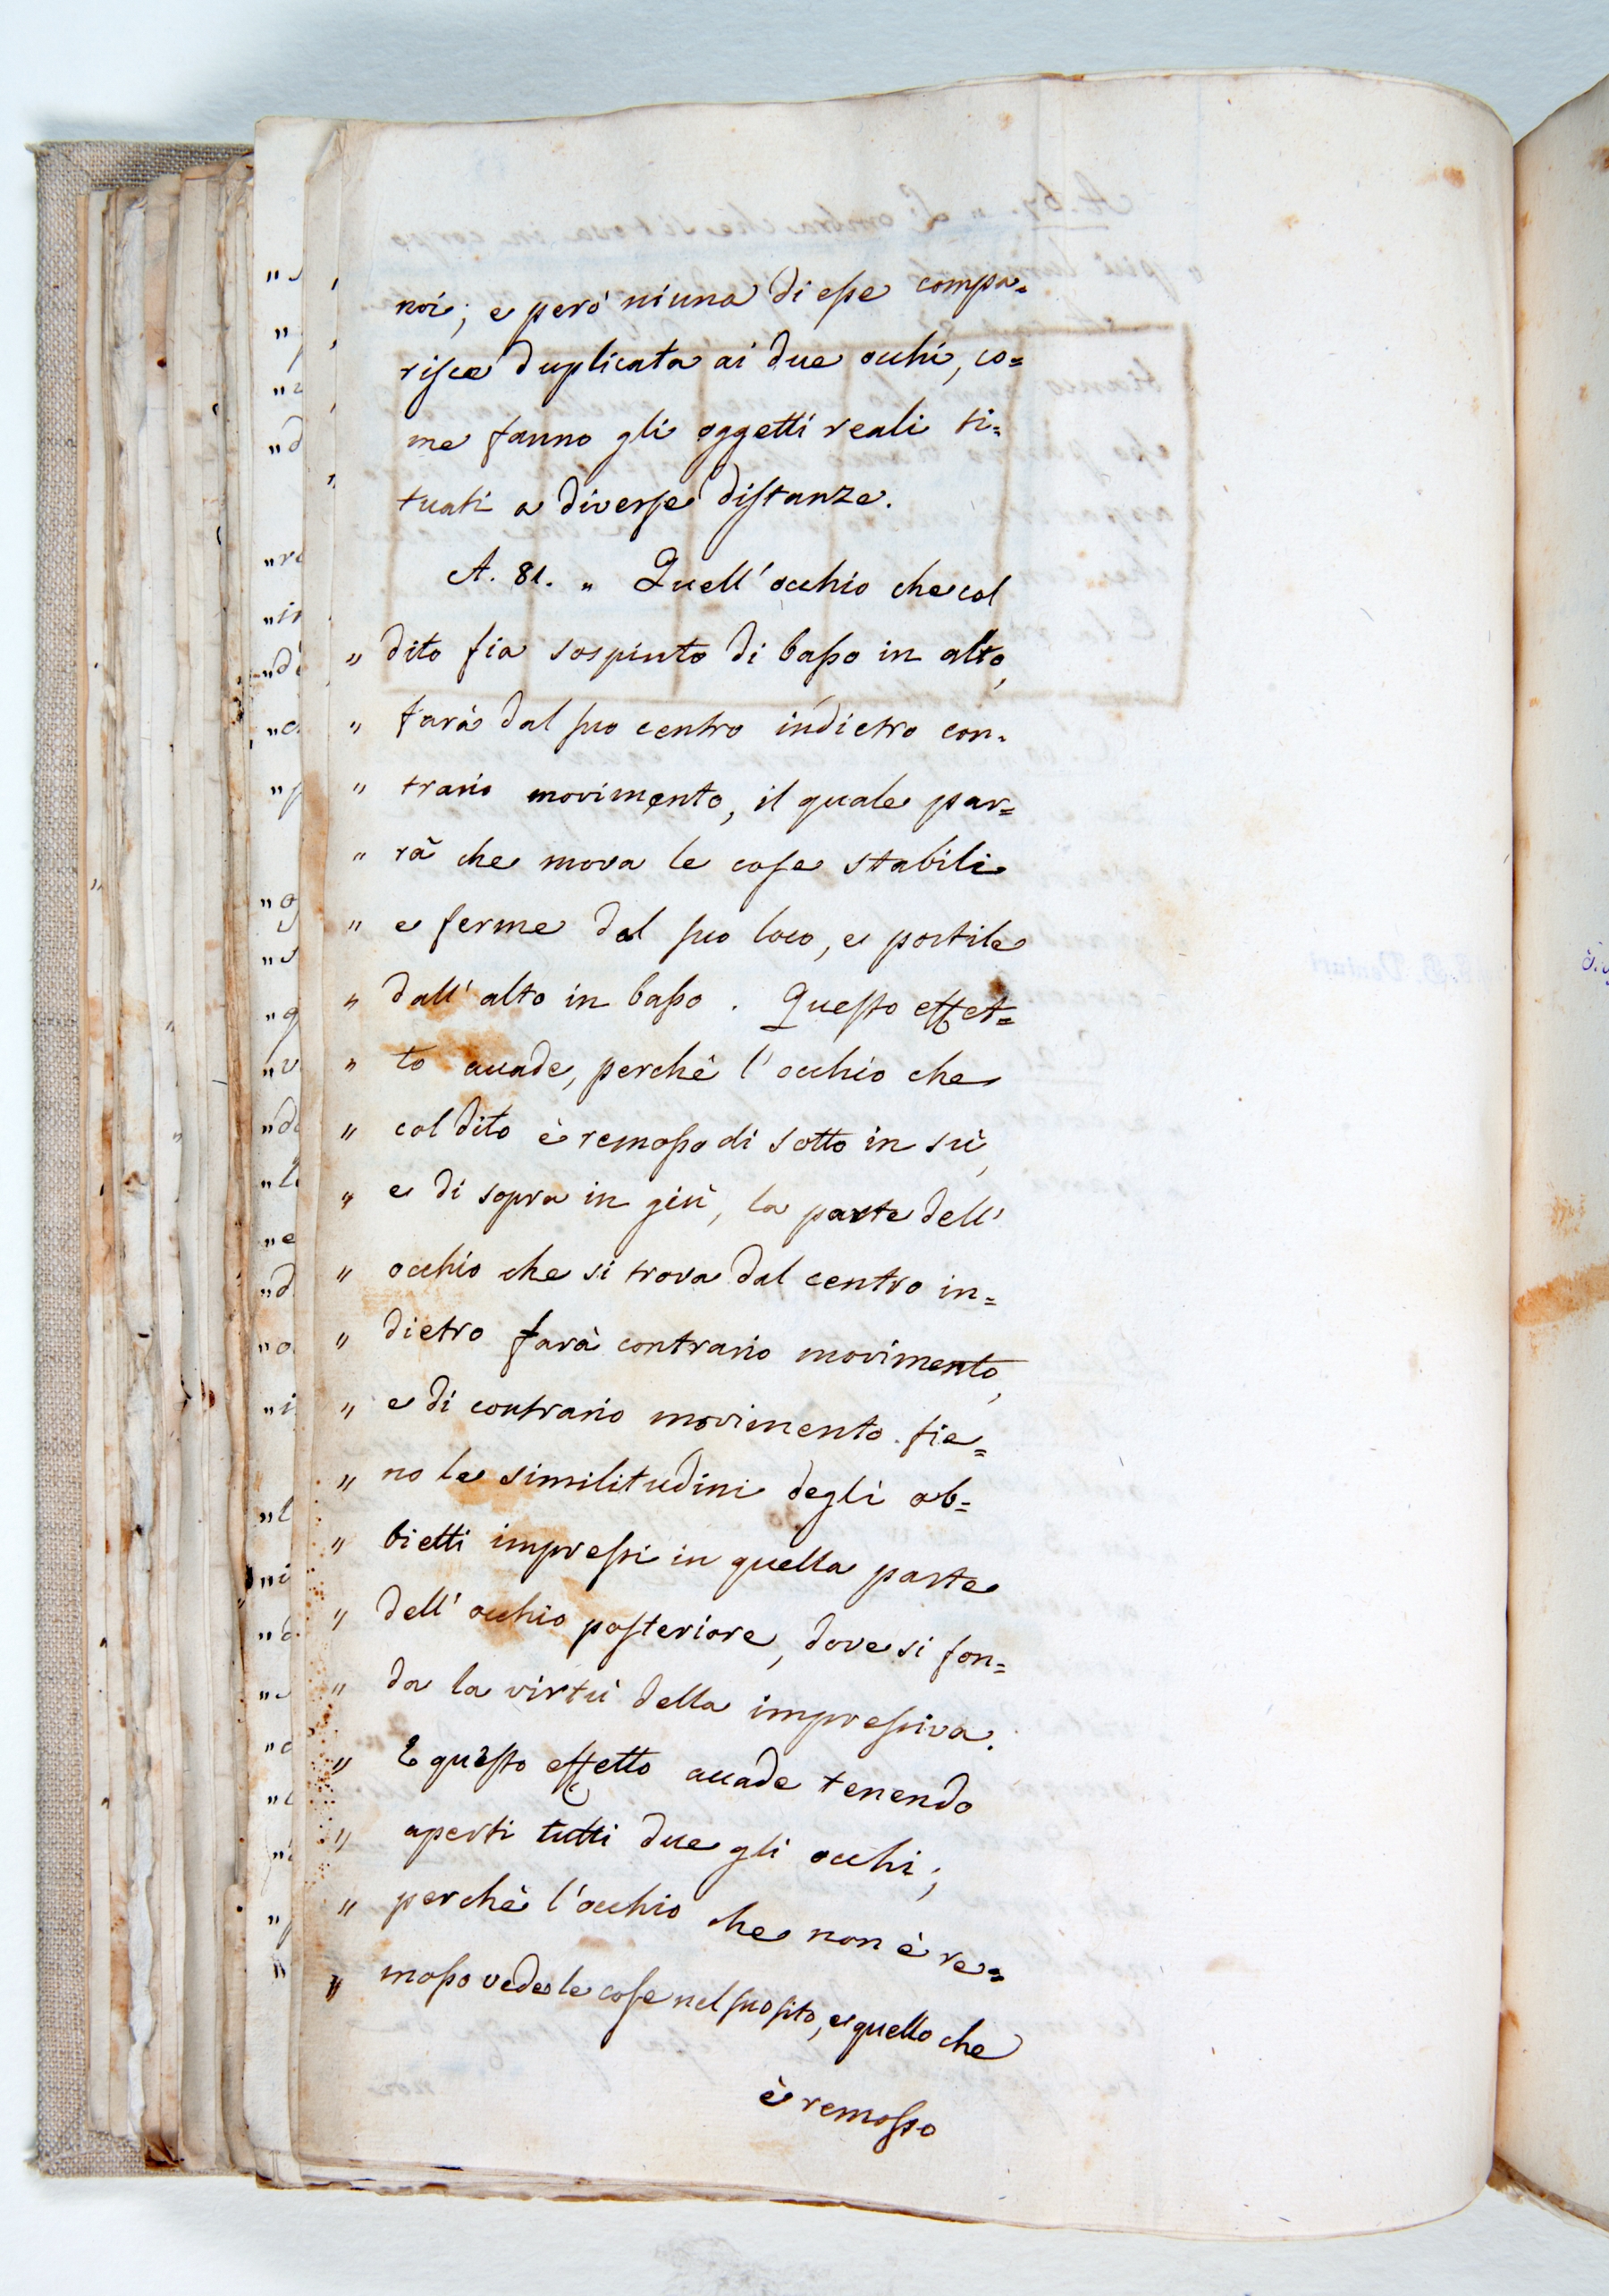 noi; e però niuna di eſse compa=
riſce duplicata ai due occhi, co=
me fanno gli oggetti reali si=
tuati a diverſe diſtanze.
A. 81. „ Quell' occhio che col
„ dito fia sospinto di baſso in alto,
„ farà dal ſuo centro indietro con=
„ trario movimento, il quale par=
„ rà che mova le coſe stabili
„ e ferme dal ſuo loco, e portile
„ dall' alto in baſso. Queſto effet=
„ to accade, perchè l' occhio che
„ col dito è remoſso di sotto in sù,
„ e di sopra in giù, la parte dell'
„ occhio che si trova dal centro in=
„ dietro farà contrario movimento,
„ e di contrario movimento fie=
„ no le similitudini degli ob=
„ bietti impreſsi in quella parte
„ dell' occhio poſteriore, dove si fon=
„ da la virtù della impreſsiva.
„ E queſto effetto accade tenendo
„ aperti tutti due gli occhi;
„ perchè l' occhio che non è re=
„ moſso vede le coſe nel ſuo ſito, e quello che
è remoſso